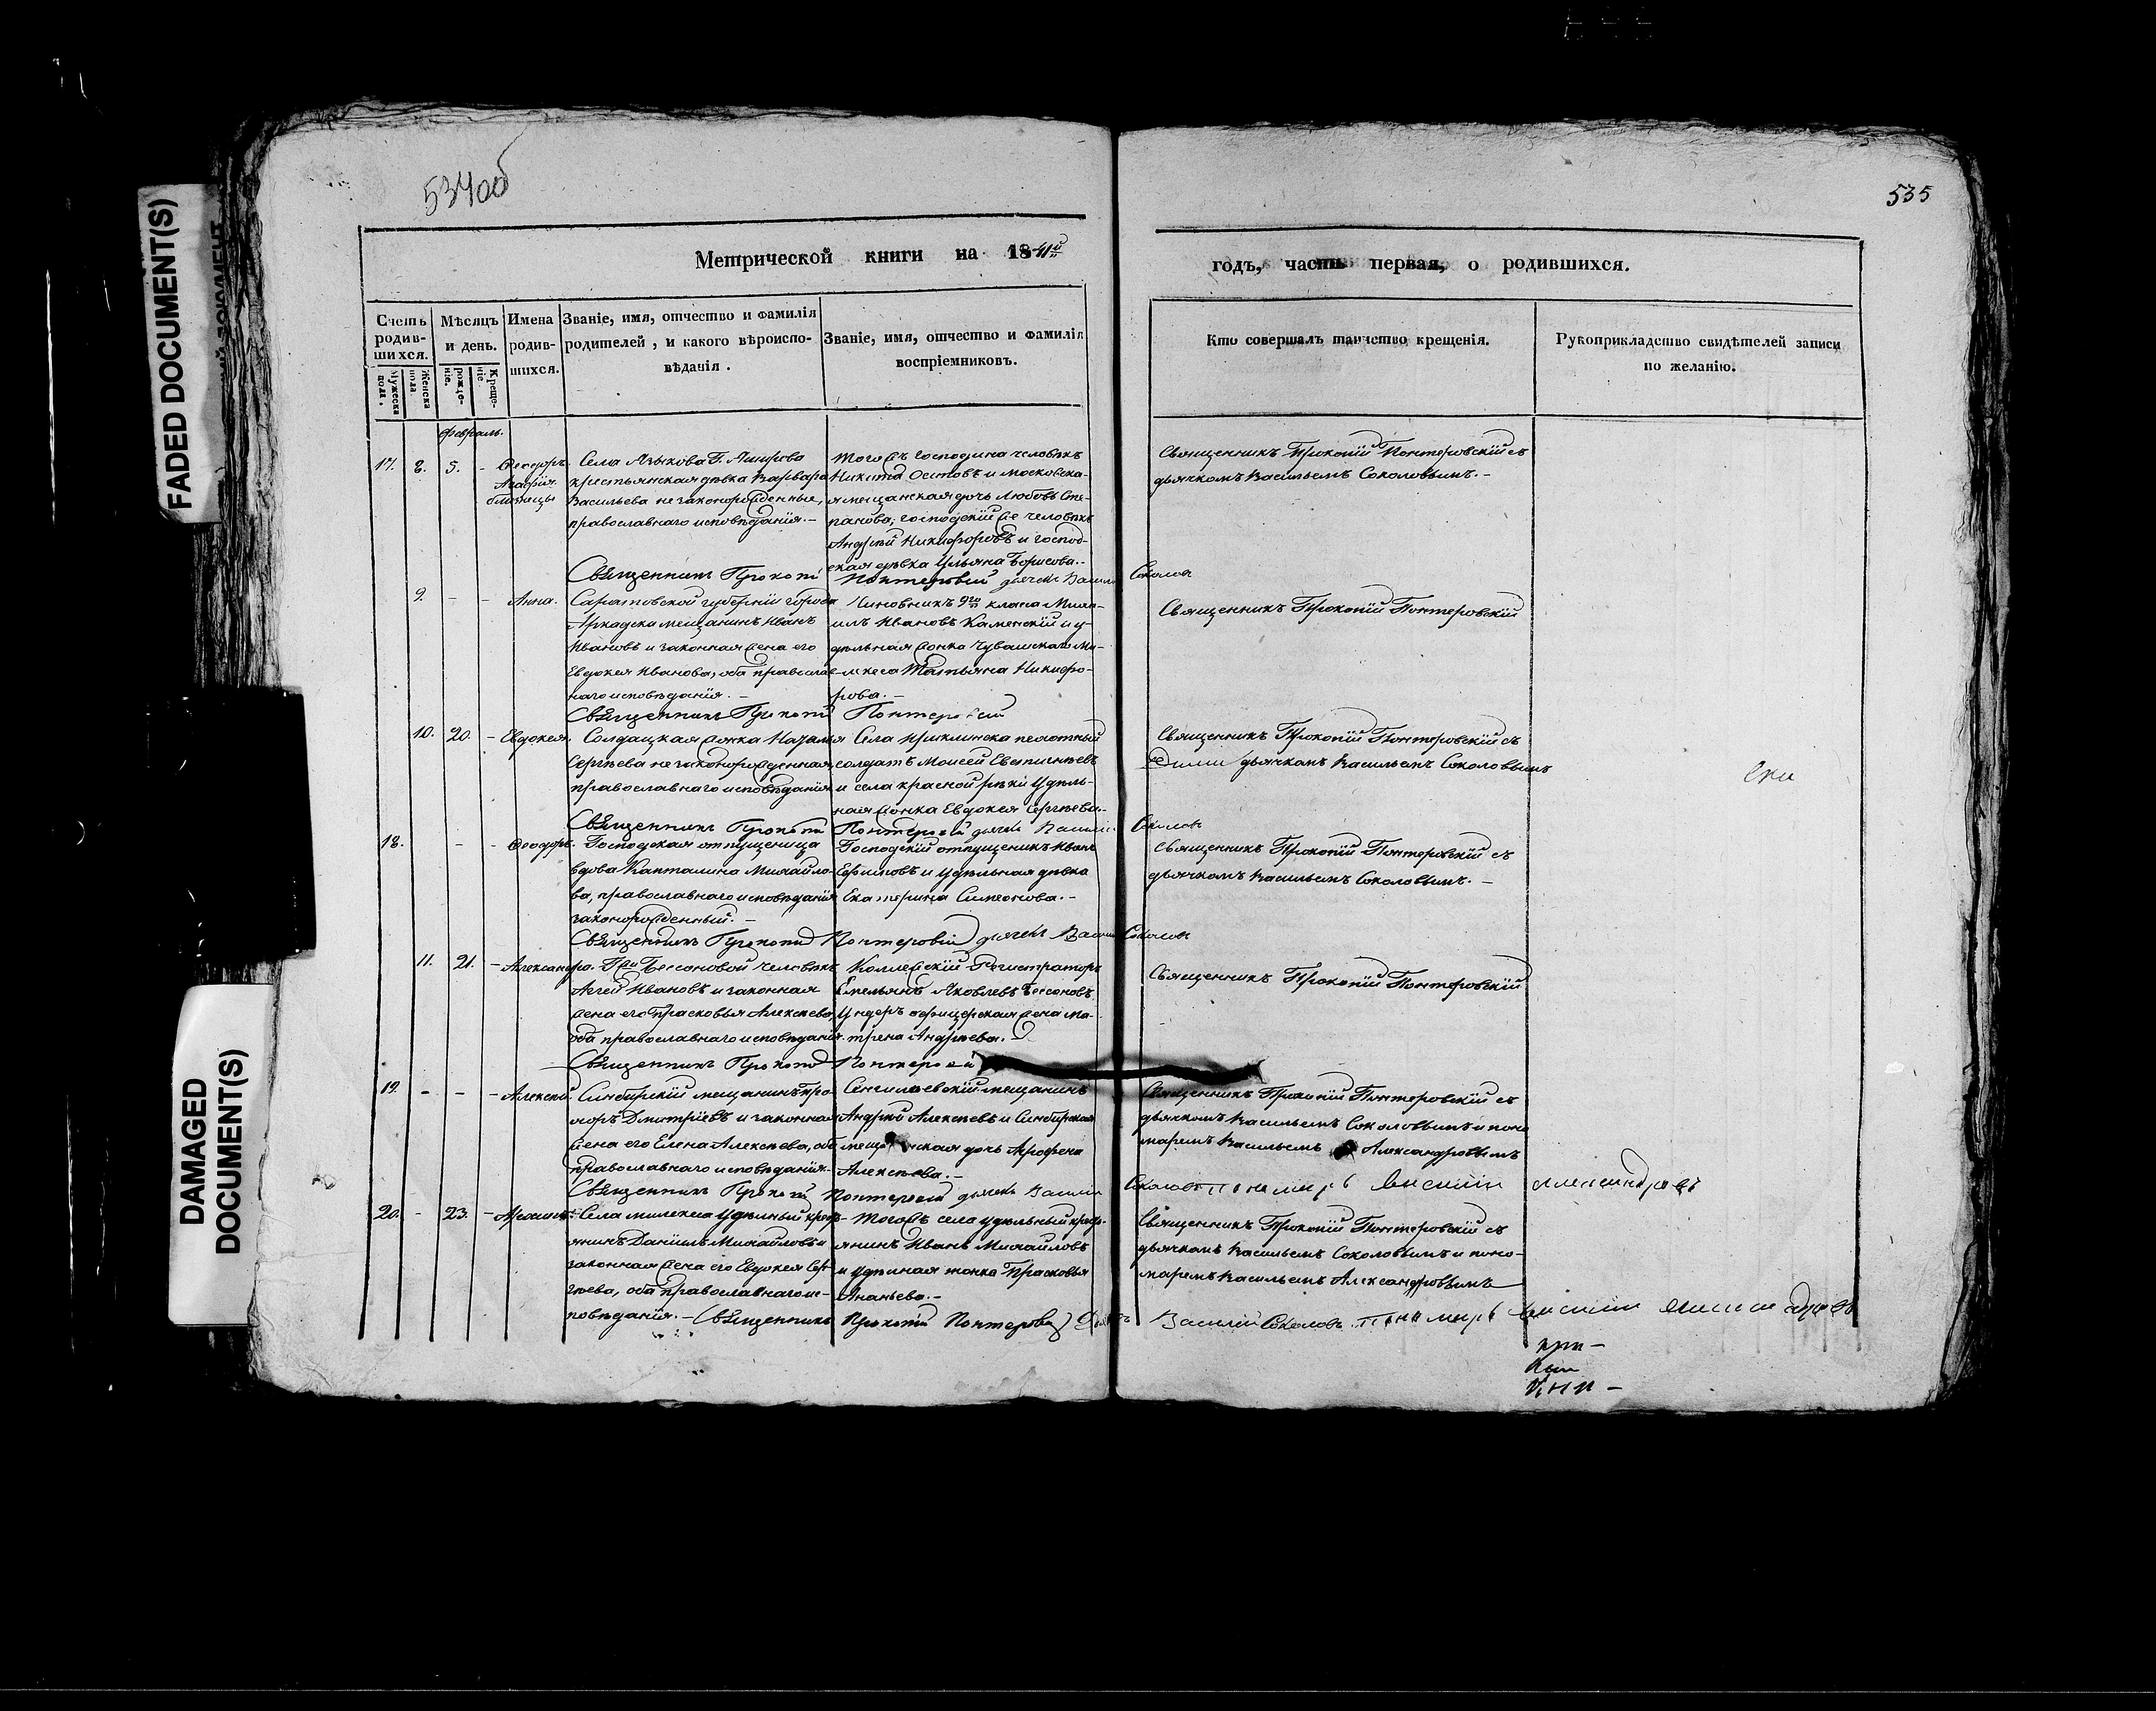 534об
535
Метрической книги на 1841й
годъ, часть первая, о родившихся.
Счетъ родив-шихся.
Мужеска пола.
Женска пола
Мѣсяцъ и день.
рожде-нiе.
Креще-нiе
Имена родив-шихся.
Званiе, имя, отчество и фамилiя родителей, и какого вѣроиспо-вѣданiя.
Званiе, имя, отчество и фамилiя воспрiемниковъ.
Кто совершалъ таинство крещенiя.
Рукоприкладство свидѣтелей записи по желанiю.
февраль.
17. 8. 5. -
Ѳеодоръ
Агафiя
близнецы
Села Языкова Г.
крестьянская дѣвка Варвара
Васильева незаконорожденные,
православнаго исповѣданiя. -
Тогожъ господина человѣкъ
Никита Осиповъ и московска-
я мещанская дочь Любовь Сте-
панова; господскiй же человѣкъ
Андрей Никифоровъ и господ-
ская дѣвка Ульяна Борисова. -
Священникъ Прокопiй Понтеровскiй съ
дьячкомъ Васильемъ Соколовымъ. -
Священникъ Прокопiй Понтеровскiй дьячекъ Василiй Соколовъ
9. - - Анна.
Саратовской губернiи города
Аркадска мещанинъ Иванъ
Ивановъ и законная жена его
Евдокея Иванова, оба православ-
наго исповѣданiя. -
Чиновникъ 9го класса Миха-
илъ Ивановъ Каменскiй и у-
дѣльная жонка Чувашскаго Ме-
лекеса Татьяна Никифо-
рова. -
Священникъ Прокопiй Понтеровскiй
Священникъ Прокопiй Понтеровскiй
10. 20. - Евдокея.
Солдацкая жонка Наталья
Сергѣева незаконорожденная,
православнаго исповѣданiя
Села пехотный
солдатъ Моисей
и села красной рѣки Удѣль-
ная жонка Евдокея Сергѣева. -
Священникъ Прокопiй Понтеровскiй съ
дьячкомъ Васильемъ Соколовымъ
Священникъ Прокопiй Понтеровскiй дьячекъ Василiй Соколовъ
18. - - Ѳеодоръ.
Господская отпущеница
вдова Капталина Михайло-
ва, православнаго исповѣданiя
законорожденный. -
Господскiй отпущеникъ Иванъ
Ефимовъ и удѣльная дѣвка
Екатерина Симеонова. -
Священникъ Прокопiй Понтеровскiй съ
дьячкомъ Васильемъ Соколовымъ. -
Священникъ Прокопiй Понтеровскiй дьячекъ Василiй Соколовъ
11. 21. - Александра.
Гжи Бессоновой человѣкъ
Агей Ивановъ и законная
жена его Прасковья Алексѣева,
оба православнаго исповѣданiя.
Коллежскiй Регистраторъ
Емельянъ Яковлевъ Бессоновъ
Ундеръ офицерская жена Ма-
трена Андрѣева.
Священникъ Прокопiй Понтеровскiй
Священникъ Прокопiй Понтеровскiй
19. - - - Алексѣй.
Синбирскiй мещанинъ Про-
хоръ Дмитрiевъ и законная
жена его Елена Алексѣева, оба
православнаго исповѣданiя. -
Сенгилеевскiй мещанинъ
Андрей Алексѣевъ и Синбирская
мещанская дочь Агрофена
Алексѣева. -
Священникъ Прокопiй Понтеровскiй съ
дьячкомъ Васильемъ Соколовымъ и поно
маремъ Васильемъ Александровымъ
Священникъ Прокопiй Понтеровскiй дьячекъ Василiй Соколовъ пономарь Василiй Александровъ
20. - 23. -
Села мелекеса Удѣльный кресть-
янинъ Данiилъ Михайловъ и
законная жена его Евдокея Сер-
гѣева, оба православнаго ис-
повѣданiя. -
Тогожъ села удѣльный кресть-
янинъ Иванъ Михайловъ
и удѣльная жонка Прасковья
Ананьева. -
Священникъ Прокопiй Понтеровскiй съ
дьячкомъ Васильемъ Соколовымъ и поно-
маремъ Васильемъ Александровымъ
Священникъ Прокопiй Понтеровскiй Дьячекъ Василiй Соколовъ пономарь Василiй Александровъ
FADED DOCUMENT(S)
DAMAGED DOCUMENT(S)